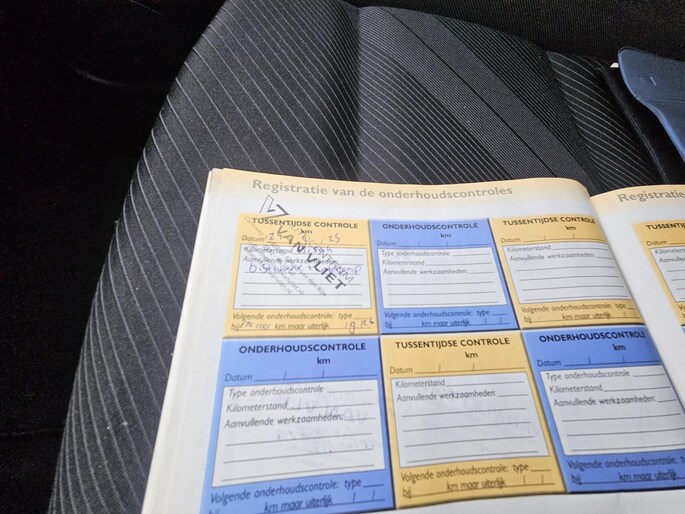 Registratie van de onderhoudscontroles
Registratie
TUSSENTIJDSE CONTROLE
km
Datum
Kilometerstand
Aanvullende werkzaamheden:
VAN VLIET
Volgende onderhoudscontrole: type
bij km maar uiterlijk
ONDERHOUDSCONTROLE
km
Datum / /
Type onderhoudscontrole
Kilometerstand
Aanvullende werkzaamheden:
Volgende onderhoudscontrole: type
bij km maar uiterlijk / /
TUSSENTIJDSE CONTROLE
km
Datum / /
Kilometerstand
Aanvullende werkzaamheden:
Volgende onderhoudscontrole: type
bij km maar uiterlijk / /
ONDERHOUDSCONTROLE
km
Datum / /
Type onderhoudscontrole
Kilometerstand
Aanvullende werkzaamheden:
Volgende onderhoudscontrole: type
bij km maar uiterlijk / /
TUSSENTIJDSE CONTROLE
km
Datum / /
Kilometerstand
Aanvullende werkzaamheden:
Volgende onderhoudscontrole: type
bij km maar uiterlijk / /
ONDERHOUDSCONTROLE
km
Datum / /
Type onderhoudscontrole
Kilometerstand
Aanvullende werkzaamheden:
Volgende onderhoudscontrole: type
bij km maar uiterlijk / /